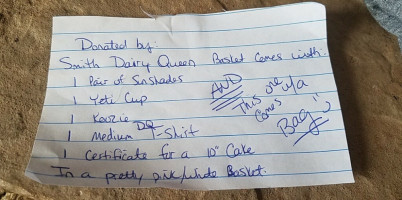 Donated by:
Smith Dairy Queen Basket Comes with:
1 Pair of Snshades
1 Yeti Cup
1 Koozie
1 Medium DQ T-Shirt
1 Certificate for a 10" Cake
In a pretty pink/white Basket.
AND
This one
comes w/a
Bag